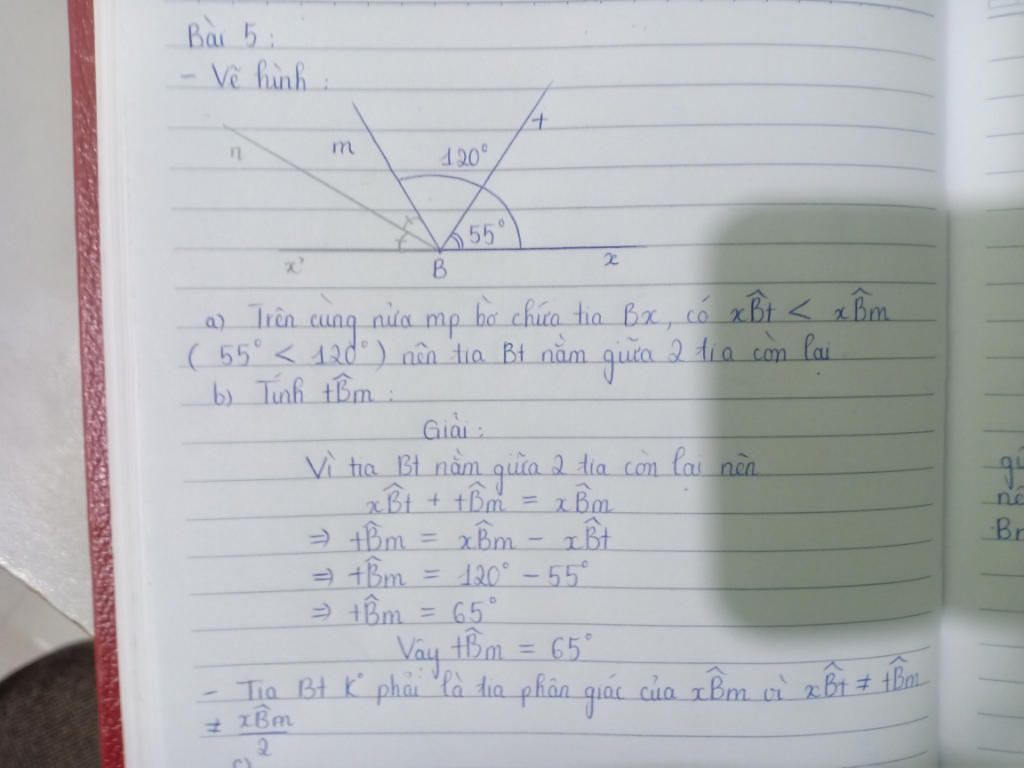 Bài 5 :
- Vẽ hình :
n
m
120°
t
55°
x'
B
x
a) Trên cùng nửa mp bờ chứa tia Bx, có xB̂t < xB̂m
( 55° < 120° ) nên tia Bt nằm giữa 2 tia còn lại
b) Tính tB̂m :
Giải :
Vì tia Bt nằm giữa 2 tia còn lại nên
xB̂t + tB̂m = xB̂m
⇒ tB̂m = xB̂m - xB̂t
⇒ tB̂m = 120° - 55°
⇒ tB̂m = 65°
Vậy tB̂m = 65°
- Tia Bt K° phải là tia phân giác của xB̂m vì xB̂t ≠ tB̂m
≠ xB̂m/2
c)
gi
nê
Br